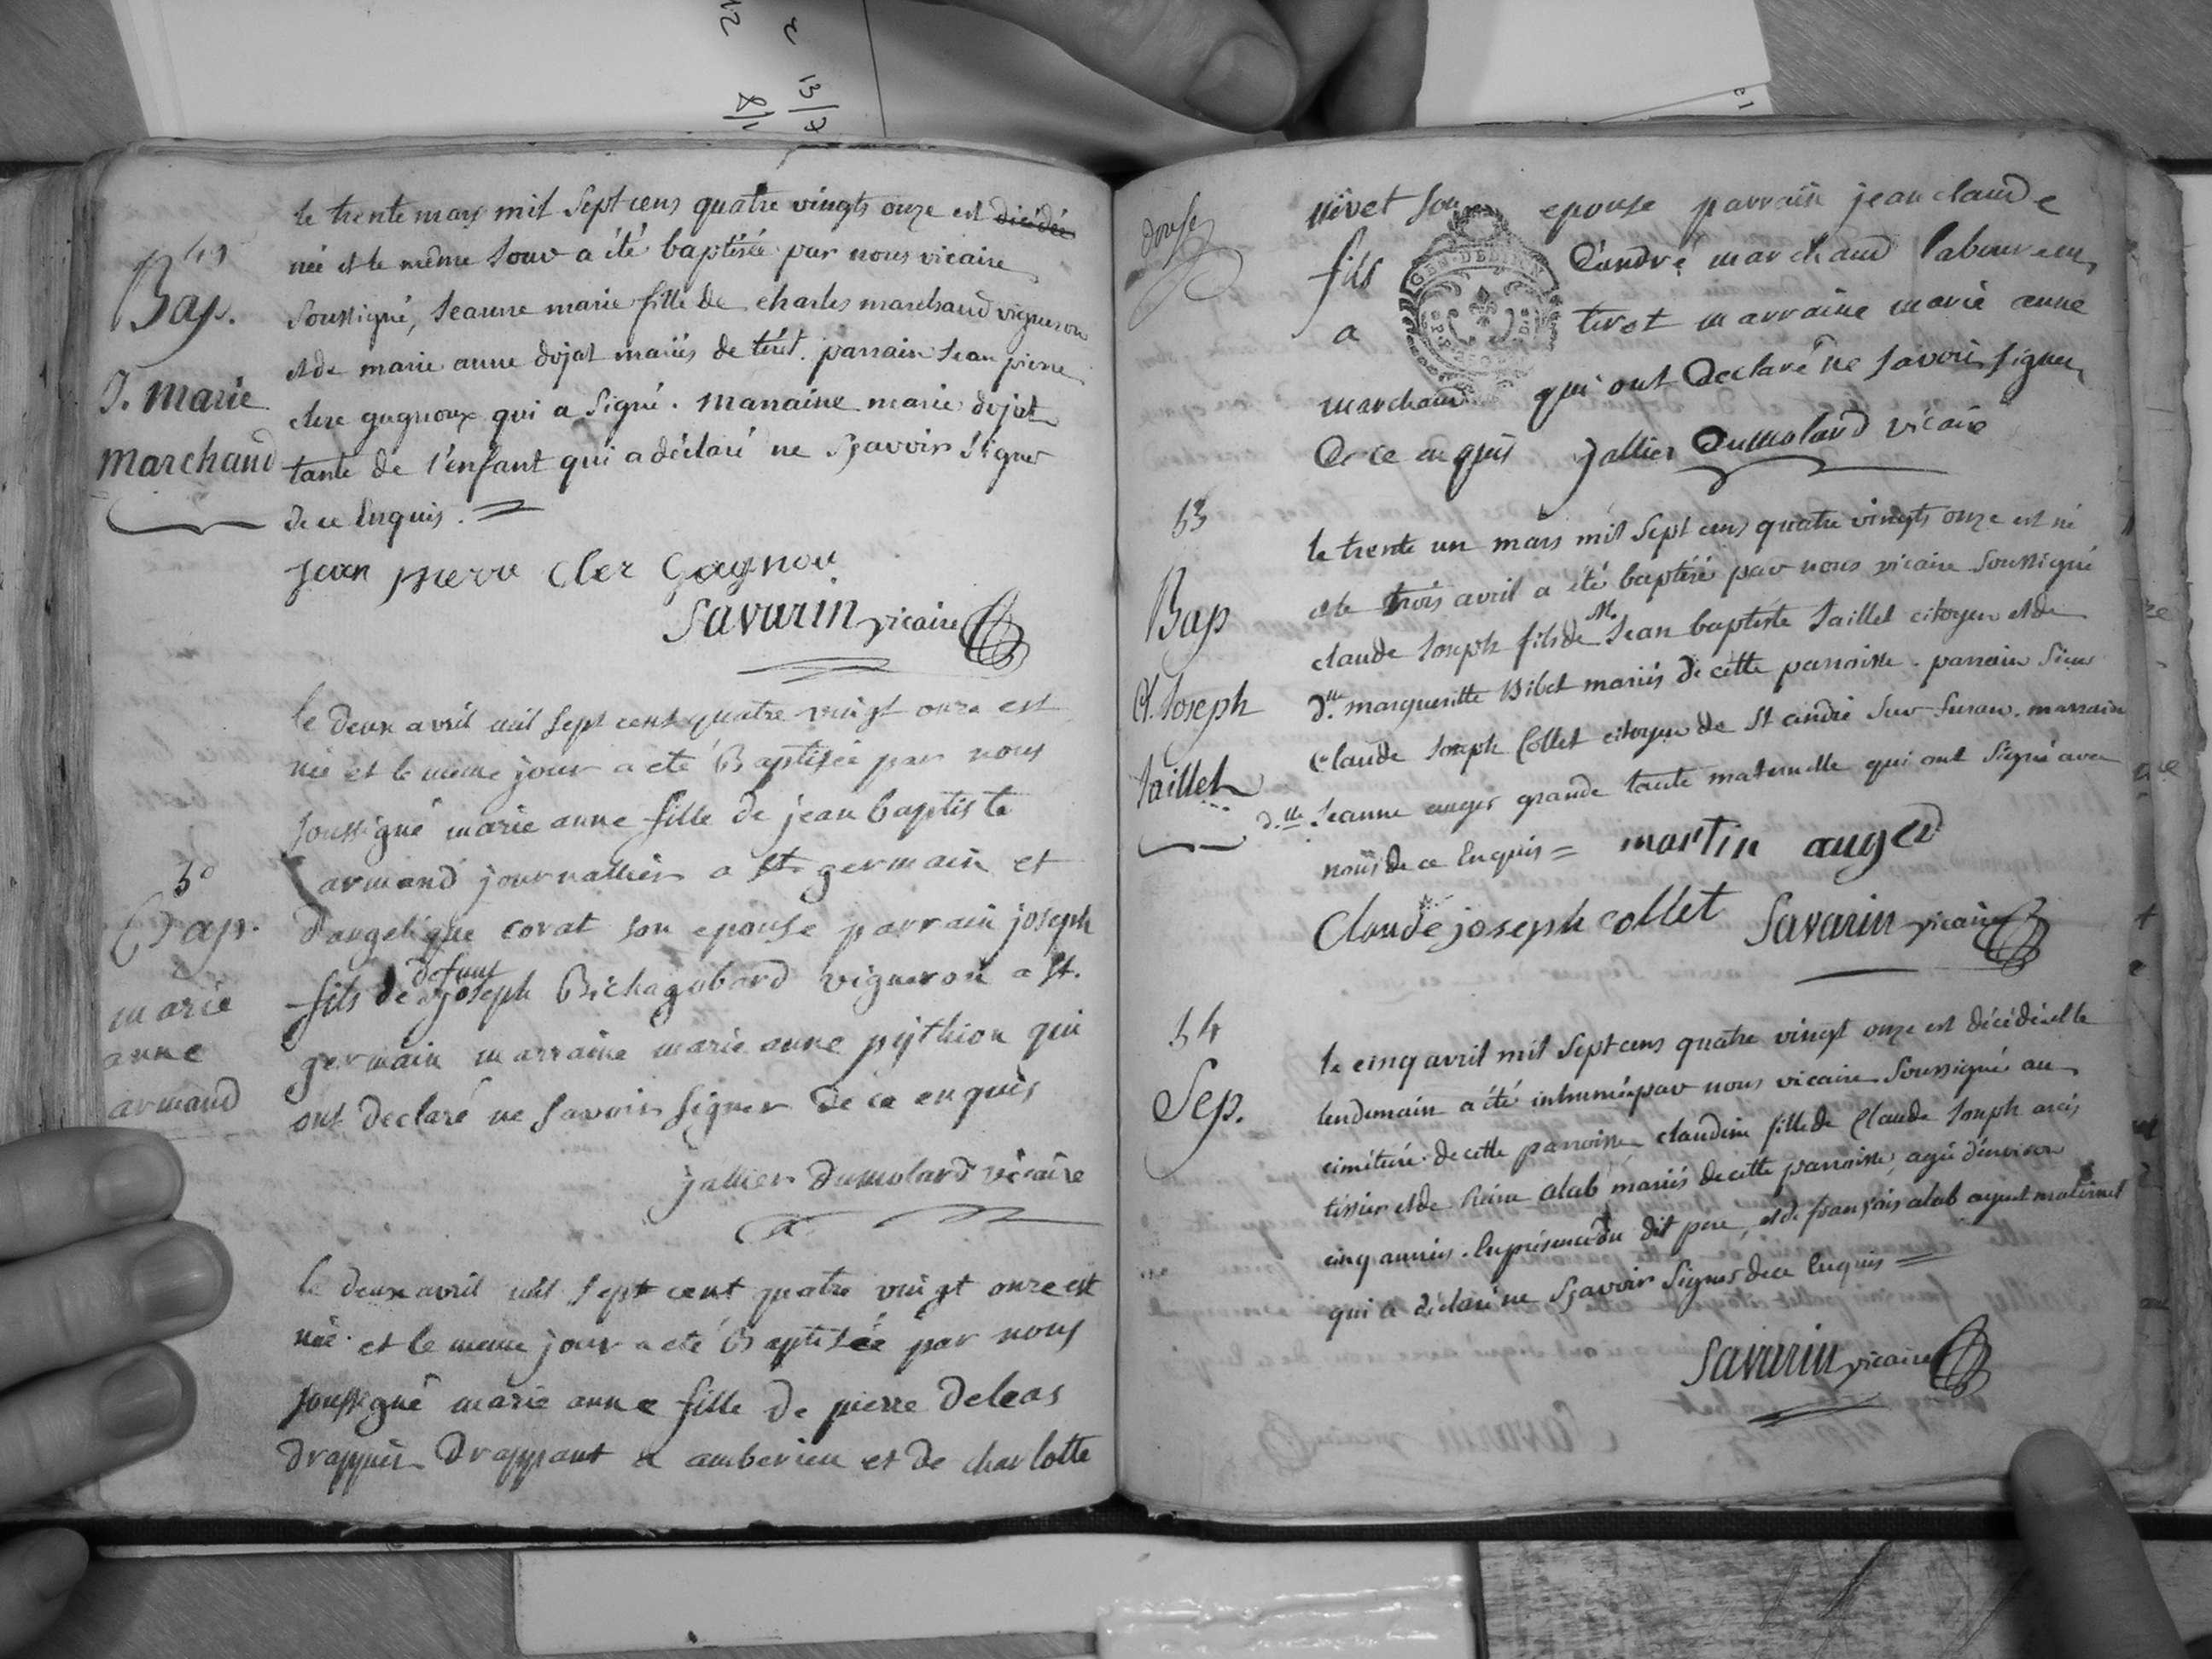 49
Bap.
J. Marie
Marchand
le trente mars mil sept cens quatre vingts onze est décédée
née et le même jour a été baptisée par nous vicaire
soussigné, jeanne marie fille de charles marchand vigneron
et de marie anne dojat mariés de tiret. parrain jean pierre
clerc gagnoux qui a signé. marraine marie dojat
tante de l'enfant qui a déclaré ne sçavoir signer
de ce enquis.
jean pierre Cler Gagnou
Savarin vicaire
50
Bap.
marie
anne
armand
le deux avril mil sept cent quatre vingt onze est
née et le meme jour a eté Baptisée par nous
soussigné marie anne fille de jean baptiste
armand journallier a st germain et
d'angelique corat son epouse parrain joseph
defunt
fils de joseph Bichagobard vigneron a st.
germain marraine marie anne pythion qui
ont declaré ne savoir signer de ce enquis
jallier dumolard vicaire
le deux avril mil sept cent quatre vingt onze est
née et le meme jour a eté Baptisée par nous
soussigné marie anne fille de pierre deleas
drappier drappant a amberieu et de charlotte
douse
nivet son epouse parrain jean claude
fils d'andré marchand laboureur
a tiret marraine marie anne
marchand qui ont declaré ne savoir signer
de ce enquis jallier dumolard vicaire
GEN. DE DIJON
53
Bap
Cl. Joseph
Jaillet
le trente un mars mil sept cens quatre vingts onze est né
et le trois avril a été baptisé par nous vicaire soussigné
M.
claude joseph fils de jean baptiste jaillet citoyen et de
d.lle margueritte Bibet mariés de cette parroisse. parrain sieur
Claude joseph Collet citoyen de st andré sur suran. marraine
d.lle jeanne auger grande tante maternelle qui ont signé avec
nous de ce enquis = martin auger
Claude joseph collet Savarin vicaire
54
Sep.
le cinq avril mil sept cens quatre vingt onze est décédée et le
lendemain a été inhumée par nous vicaire soussigné au
cimétiere de cette parroisse claudine fille de Claude joseph
tissier et de Reine alab mariés de cette parroisse, agée d'environ
cinq années. en présence du dit pere, et de françois alab ayeul maternel
qui a déclaré ne sçavoir signer de ce enquis =
Savarin vicaire